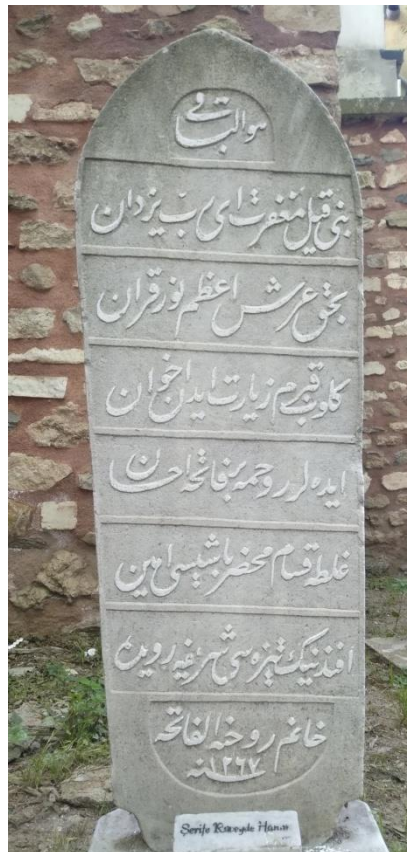 هو الباقی
بنی قیل مغفرت ای رب یزدان
بحق عرش اعظم نور قران
كلوب قبرم زیارت ایدن اخوان
ایده لر روحمه بر فاتحه احسان
غلطه قسام محضر باشیسی امین
افندینك تیزه سی شریفه
خانم روحنه الفاتحه
سنه ١٢٦٧
Şerife Hanım